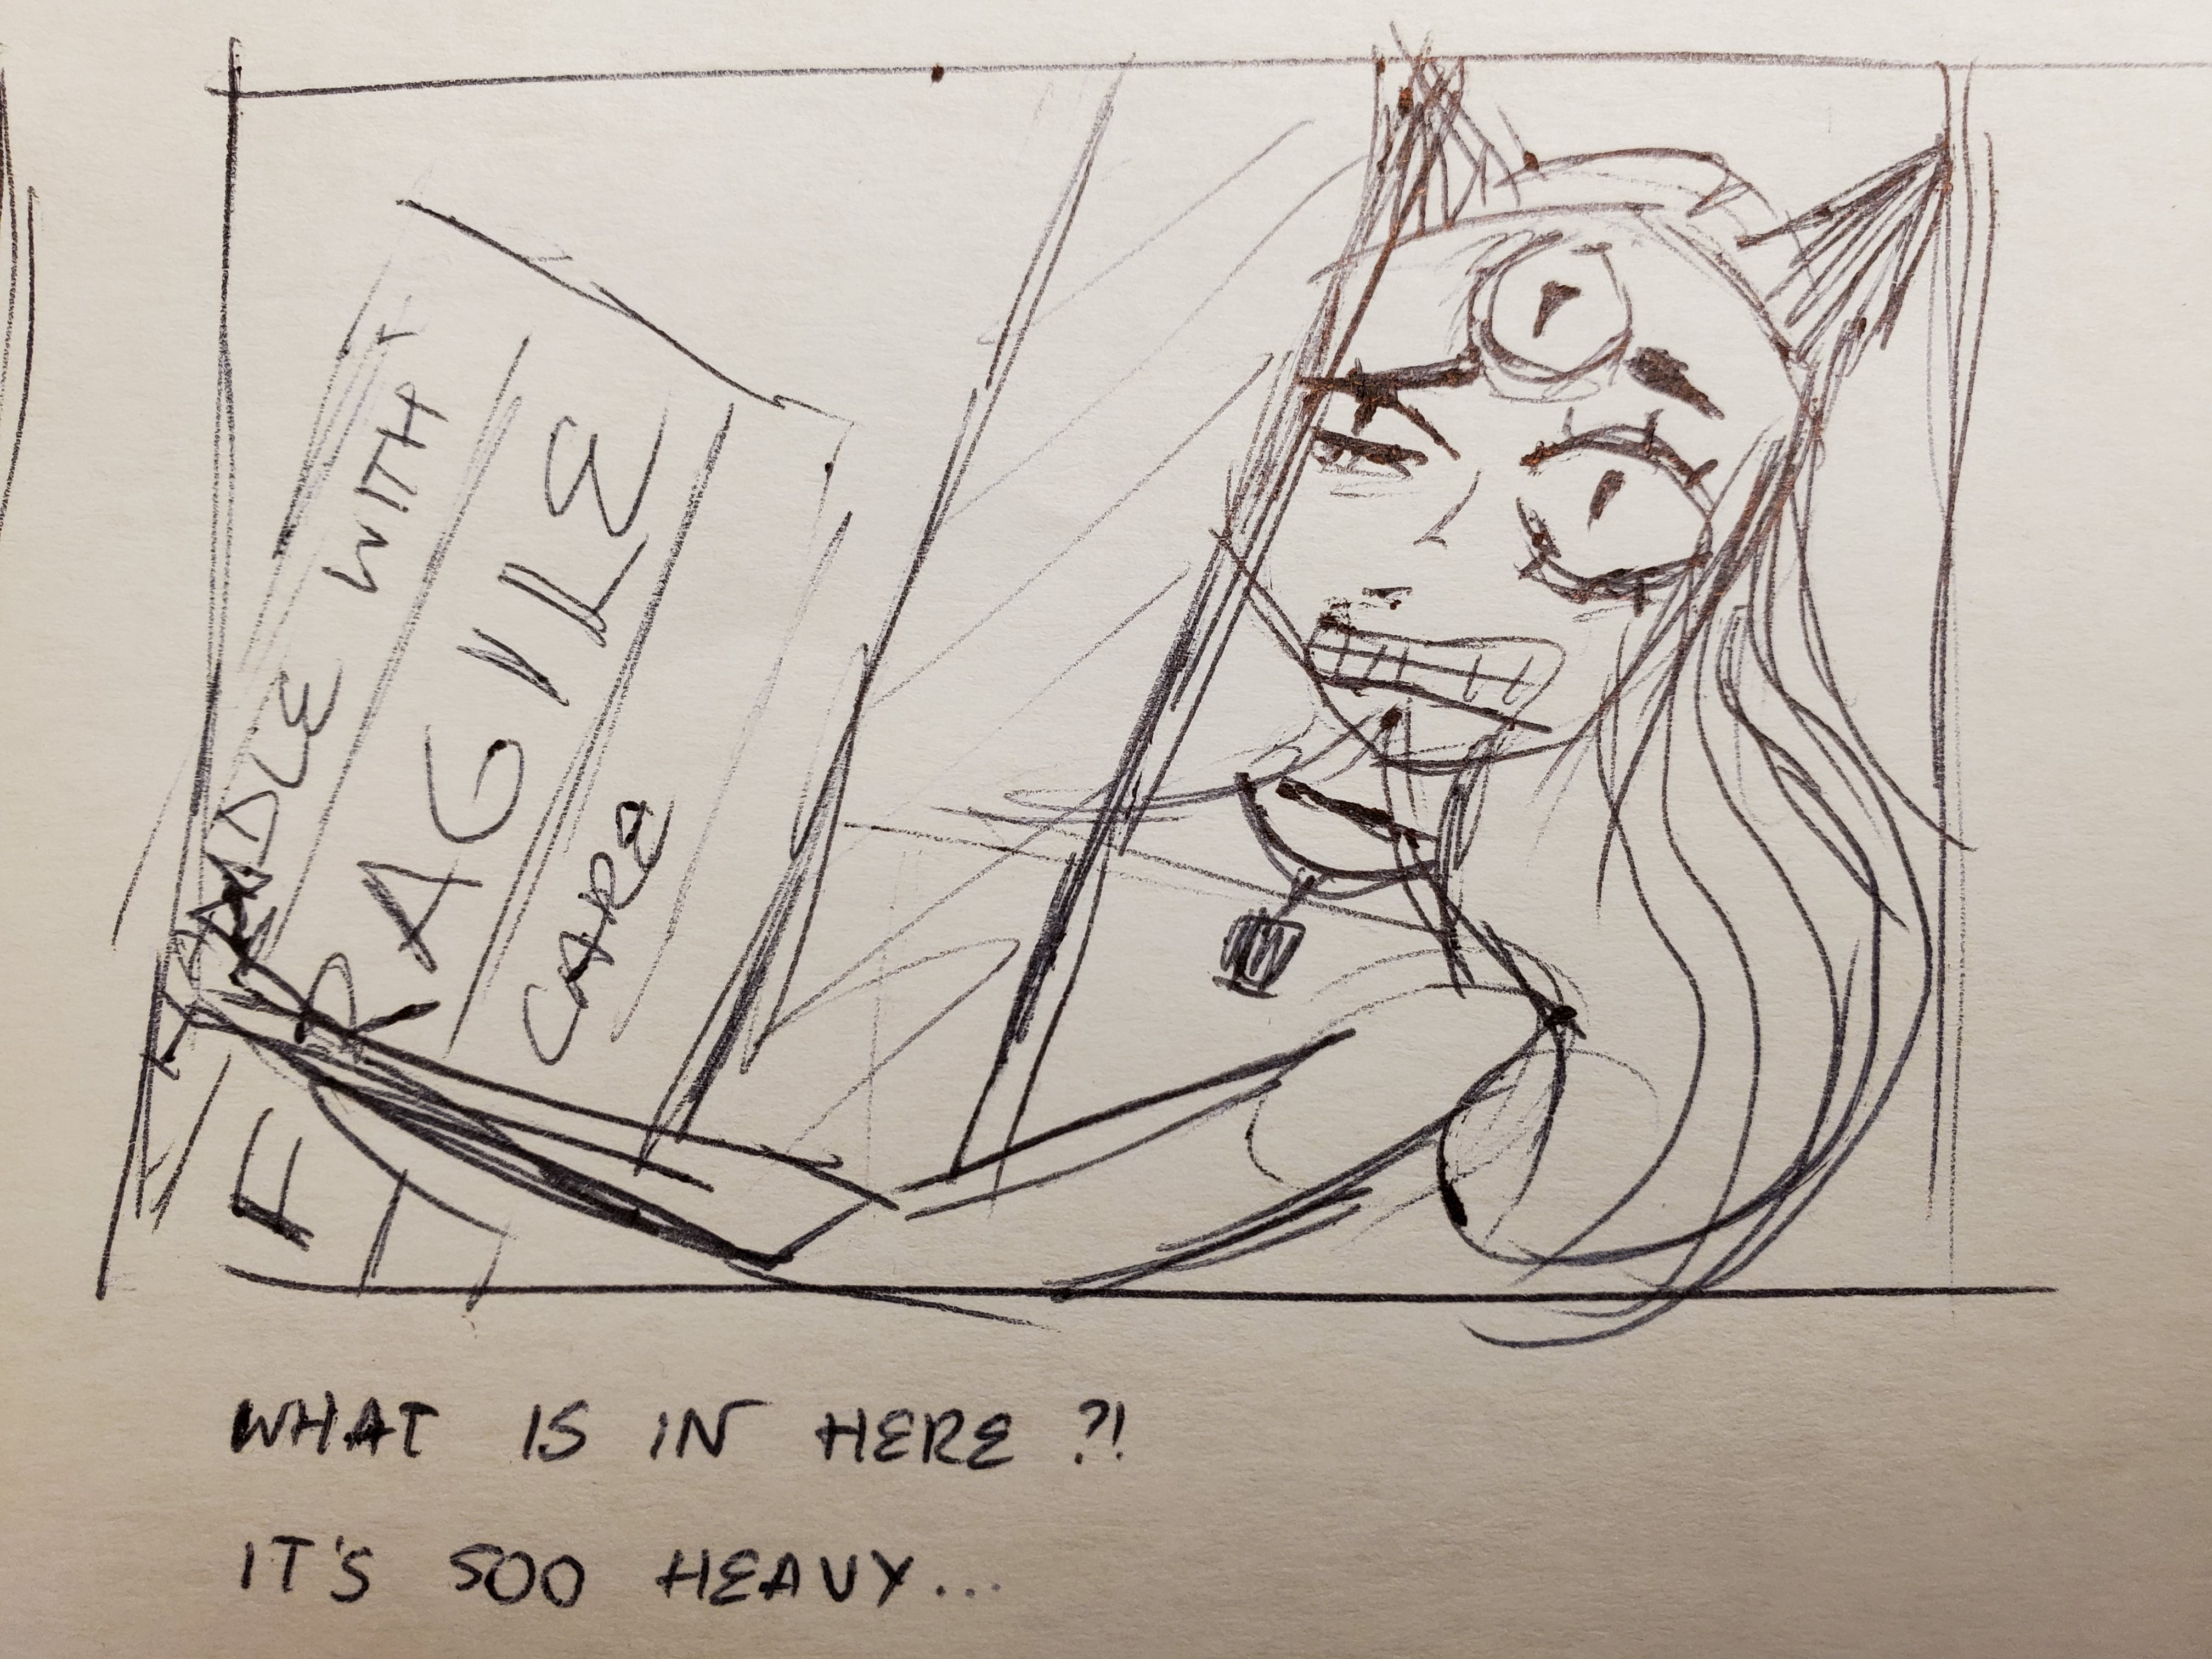 HANDLE WITH
FRAGILE
CARE
WHAT IS IN HERE ?!
IT'S SOO HEAVY...